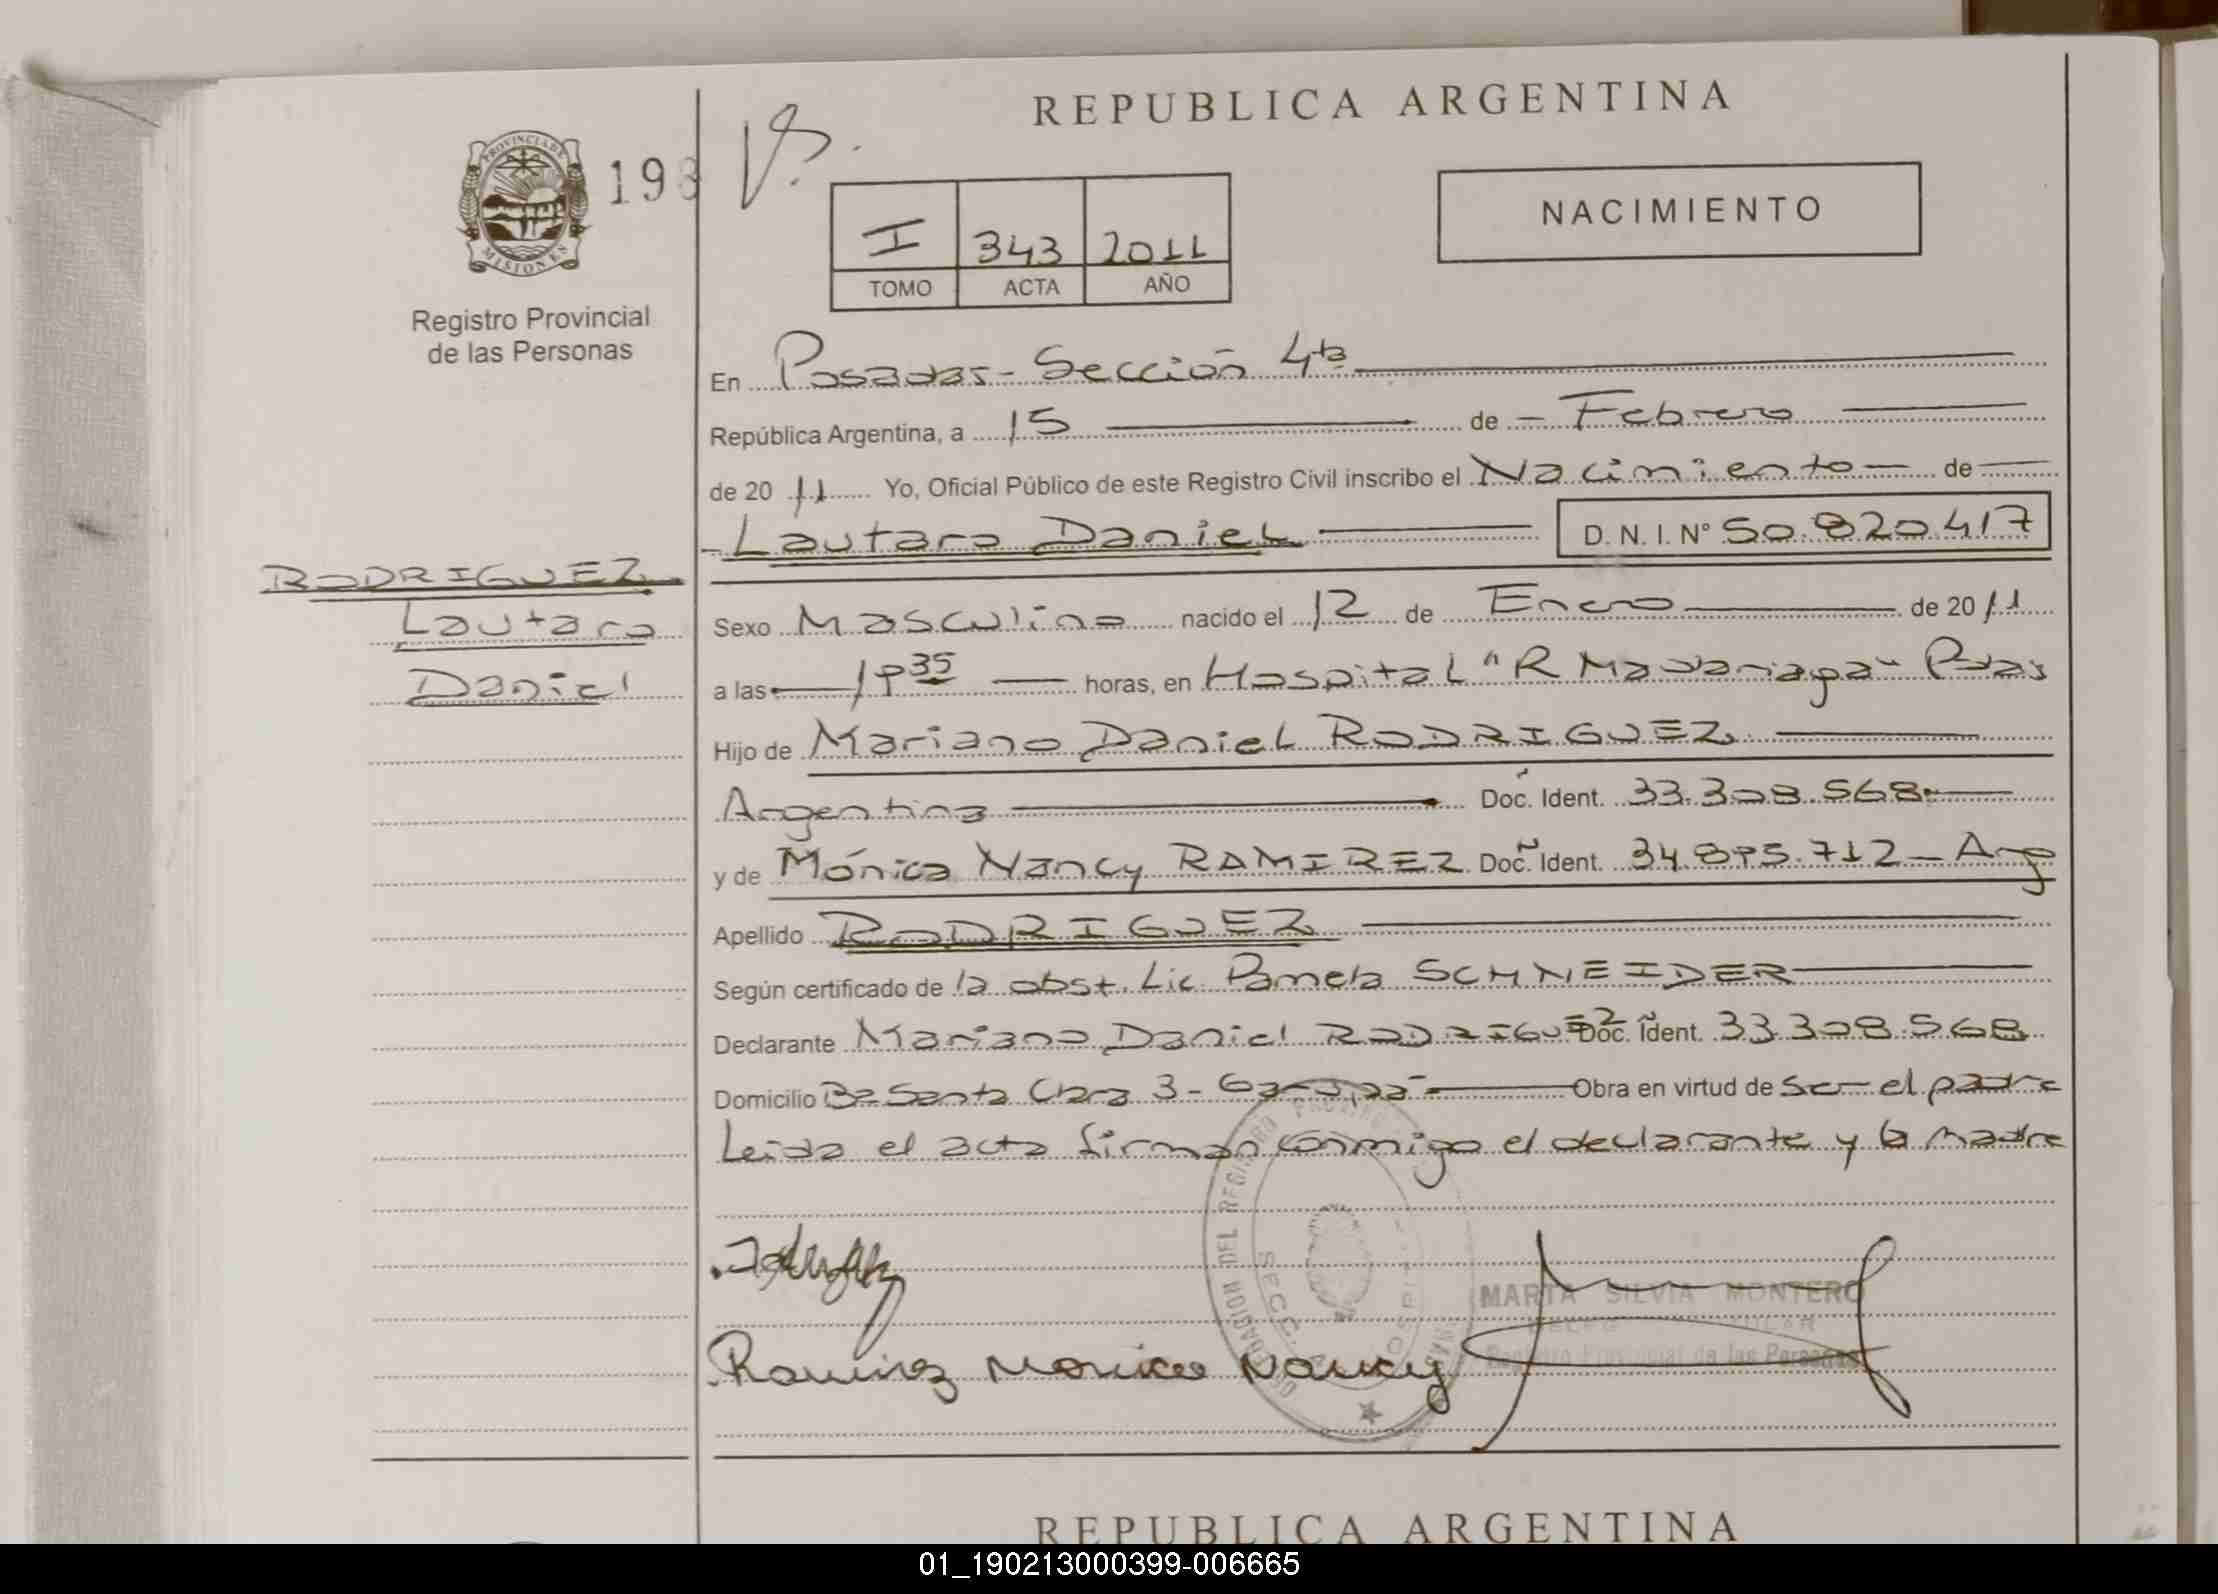 REPUBLICA ARGENTINA
PROVINCIA DE
MISIONES
198
NACIMIENTO
I 343 2011
TOMO ACTA AÑO
Registro Provincial
de las Personas
En Posadas - Sección 4ta
República Argentina, a 15 de - Febrero
de 20 11 Yo, Oficial Público de este Registro Civil inscribo el Nacimiento - de
- Lautaro Daniel D. N. I. N° 50.820.417
RODRIGUEZ
Lautaro
Daniel
Sexo Masculino nacido el 12 de Enero de 20 11
a las 19 35 horas, en Hospital "R Madariaga" Pdas
Hijo de Mariano Daniel RODRIGUEZ
Argentina Doc. Ident. 33.308.568
y de Mónica Nancy RAMIREZ Doc. Ident. 34.895.712 - Arg
Apellido RODRIGUEZ
Según certificado de la obst. Lic Pamela SCHNEIDER
Declarante Mariano Daniel RODRIGUEZ Doc. Ident. 33.308.568
Domicilio Bº Santa Clara 3 - Garupá Obra en virtud de ser el padre
Leida el acta firman conmigo el declarante y la madre
MARTA SILVIA MONTERO
Registro Provincial de las Personas
Ramirez Monica Nancy
REPUBLICA ARGENTINA
01_190213000399-006665